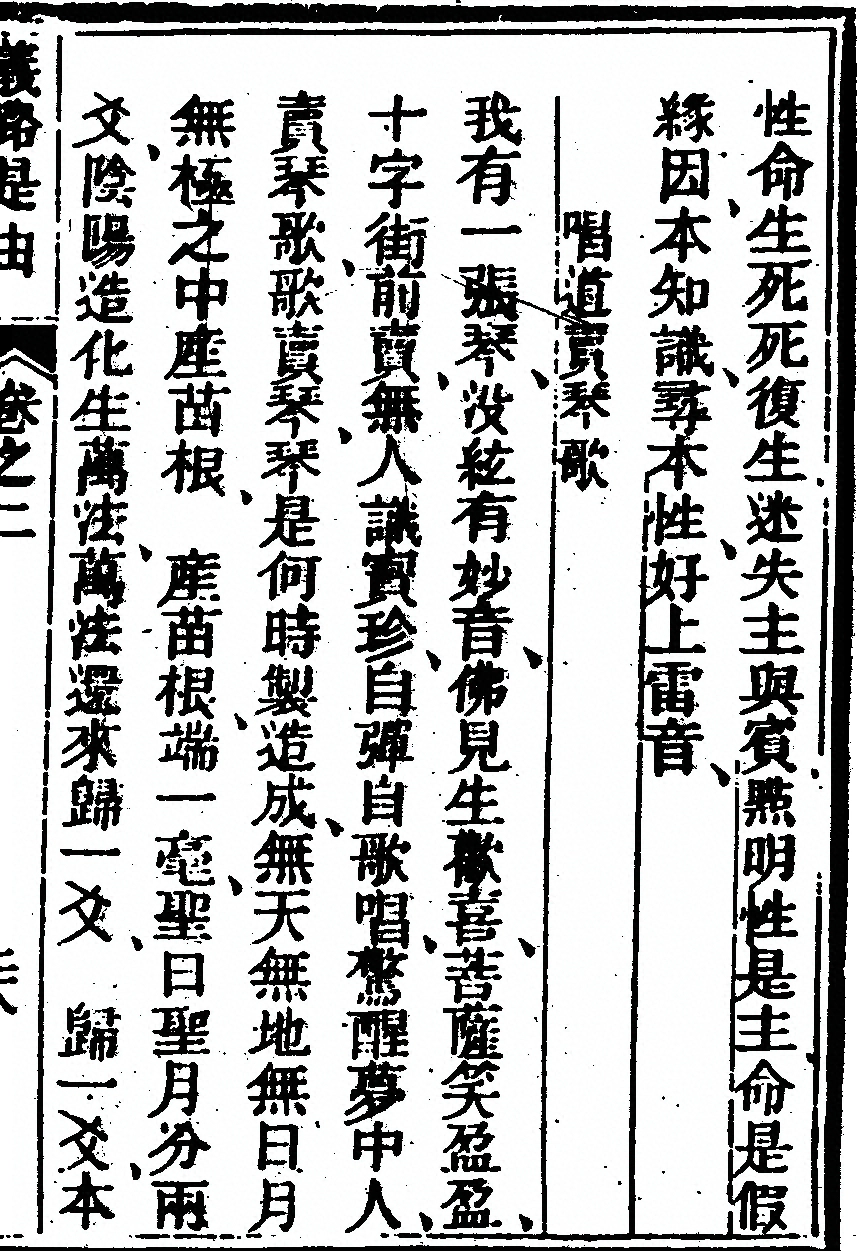 性命生死死復生迷失主與賓㸃明性是主命是假
緣因本知識尋本性好上雷音
唱道賣琴歌
我有一張琴没絃有妙音佛見生歡喜菩薩笑盈盈
十字街前賣無人識寶珍自彈自歌唱驚醒夢中人
賣琴歌歌賣琴琴是何時製造成無天無地無日月
無極之中產苗根 產苗根端一毫聖日聖月分兩
爻陰陽造化生萬法萬法還來歸一爻 歸一爻本
義路是由
卷之二